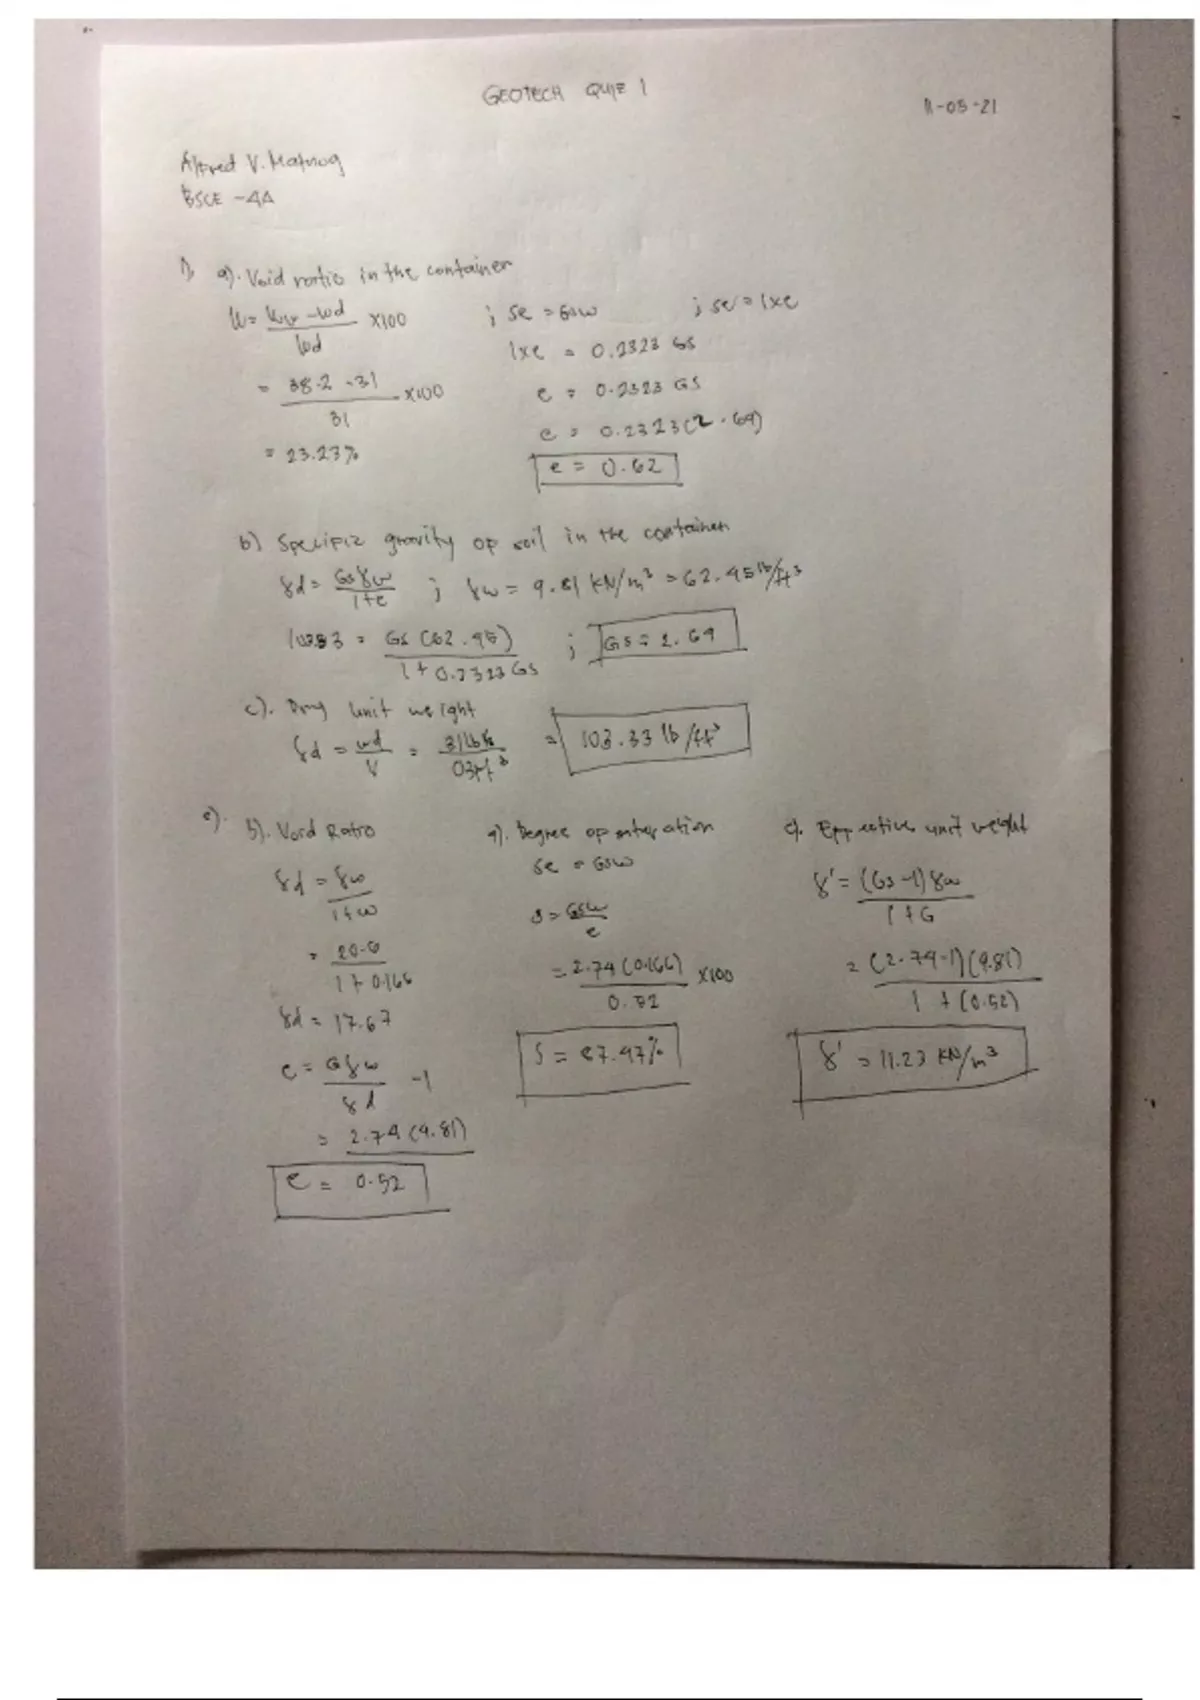 GEOTECH QUIZ 1
11-05-21
Alfred V. Matnog
BSCE - 4A
1). a). Void ratio in the container
W = Ww - Wd / Wd x100 ; Se = Gsw ; Se = 1xe
= 38.2 - 31 / 31 x100
= 23.23%
1xe = 0.2323 Gs
e = 0.2323 Gs
e = 0.2323(2.69)
e = 0.62
b) Specipiz gravity op soil in the container
γd = Gsγw / 1+e ; γw = 9.81 kN/m³ = 62.45 lb/ft³
= Gs (62.45) / 1 + 0.2323 Gs ; Gs = 2.69
c). Dry unit weight
γd = wd / V = 31 lbs / 03ft³ = 103.33 lb/ft³
b). Void Ratio
γd = γw / 1+w
= 20.6 / 1 + 0.166
γd = 17.67
e = Gγw / γd - 1
= 2.74 (9.81)
e = 0.52
a). Degree op
Se = Gsw
S = Gsw / e
= 2.74 (0.166) / 0.52 x100
S = 87.47%
c). Eppective unit weight
γ' = (Gs - 1) γw / 1 + G
= (2.74 - 1)(9.81) / 1 + (0.52)
γ' = 11.23 kN/m³